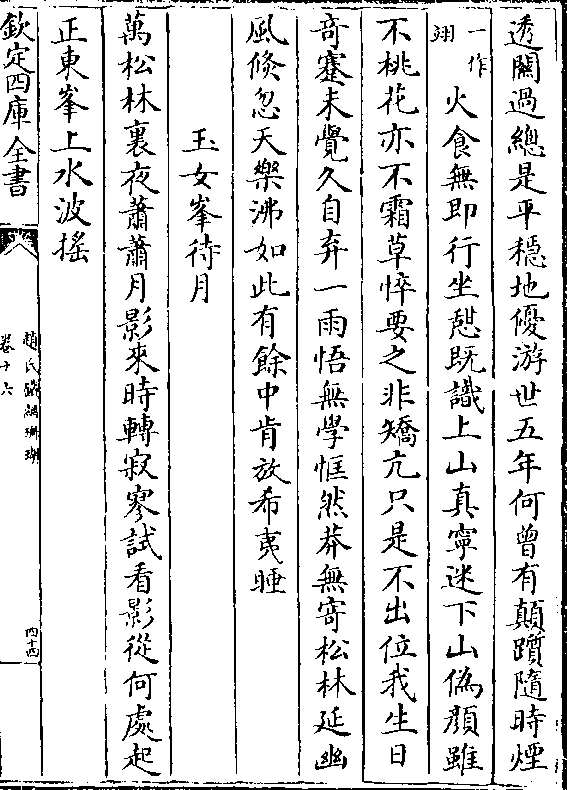 透關過總是平穩地優游世五年何曾有顛躓隨時煙
一作翊火食無即行坐憇既識上山真寧迷下山偽顏雖
不桃花亦不霜草悴要之非矯亢只是不出位我生日
竒蹇未覺久自弃一雨悟無學恇然莽無寄松林延幽
風倐忽天樂沸如此有餘中肯放希夷睡
玉女峯待月
萬松林裏夜蕭蕭月影來時轉寂寥試看影從何處起
正東峯上水波揺
欽定四庫全書
趙氏鐵網珊瑚
卷十六
四十四